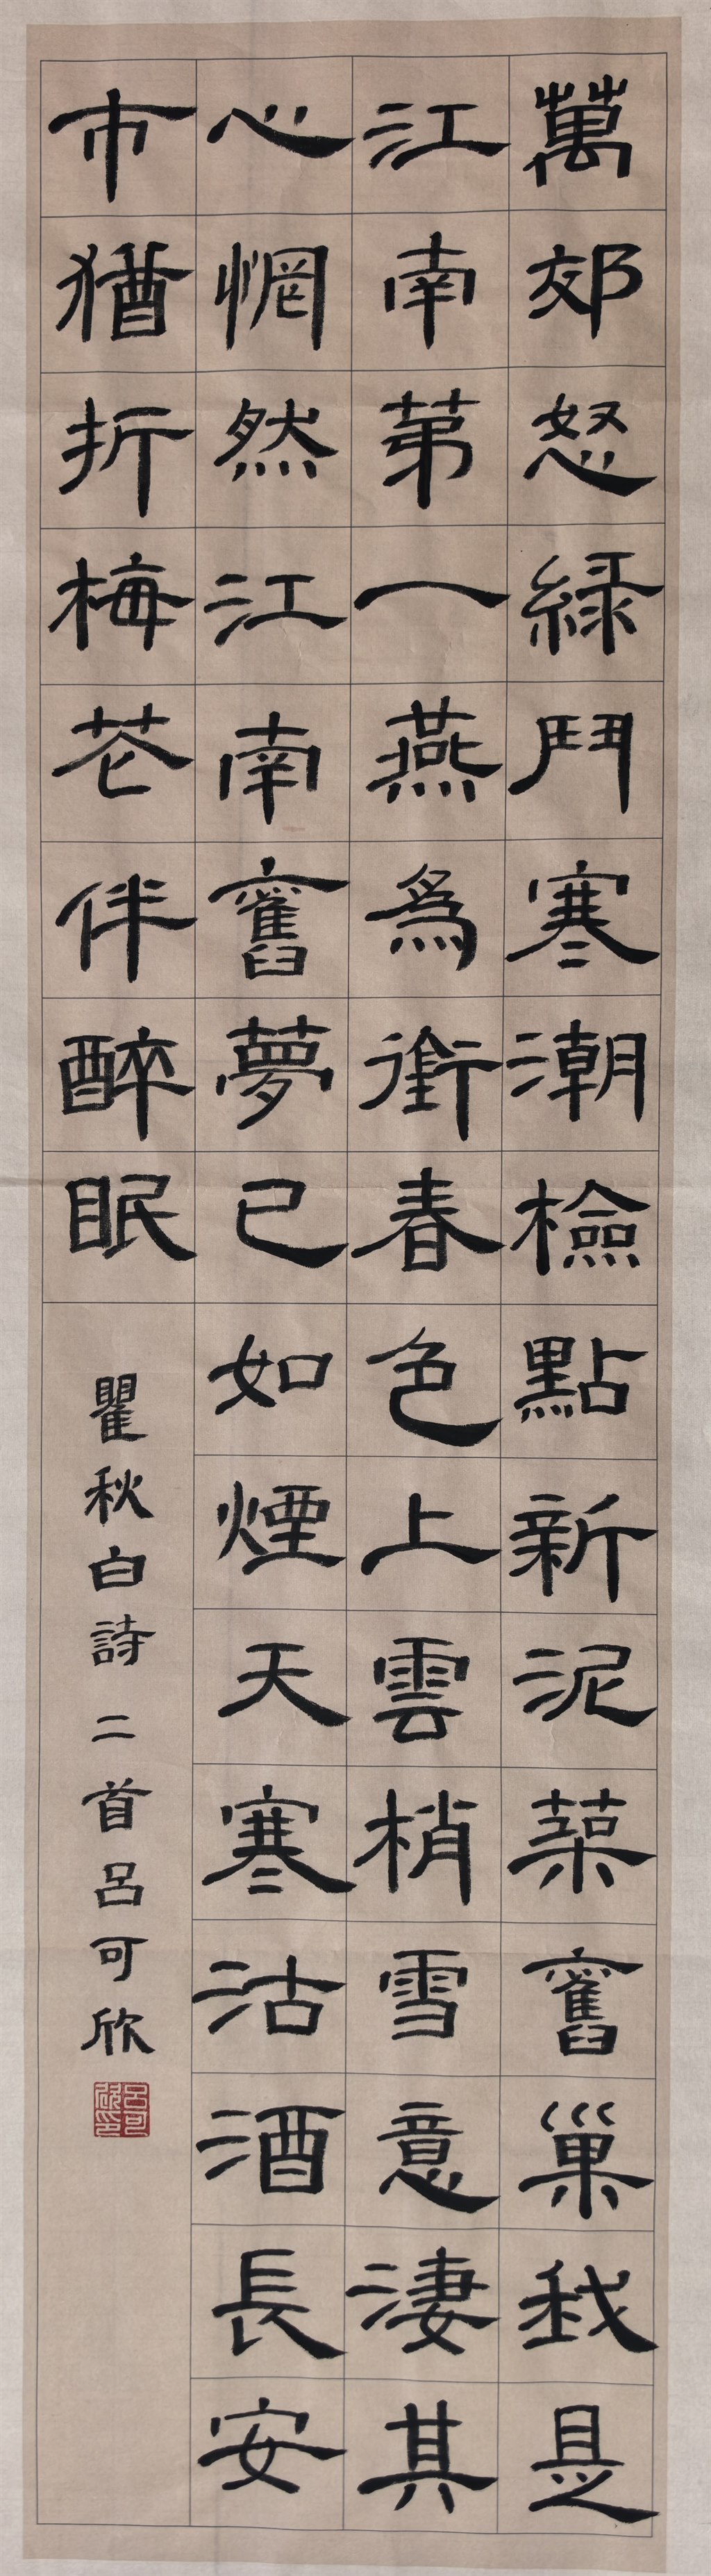 萬郊怒綠鬥寒潮檢點新泥築舊巢我是
江南第一燕爲銜春色上雲梢雪意淒其
心惘然江南舊夢已如煙天寒沽酒長安
市猶折梅花伴醉眠
瞿秋白詩二首呂可欣
呂可欣印